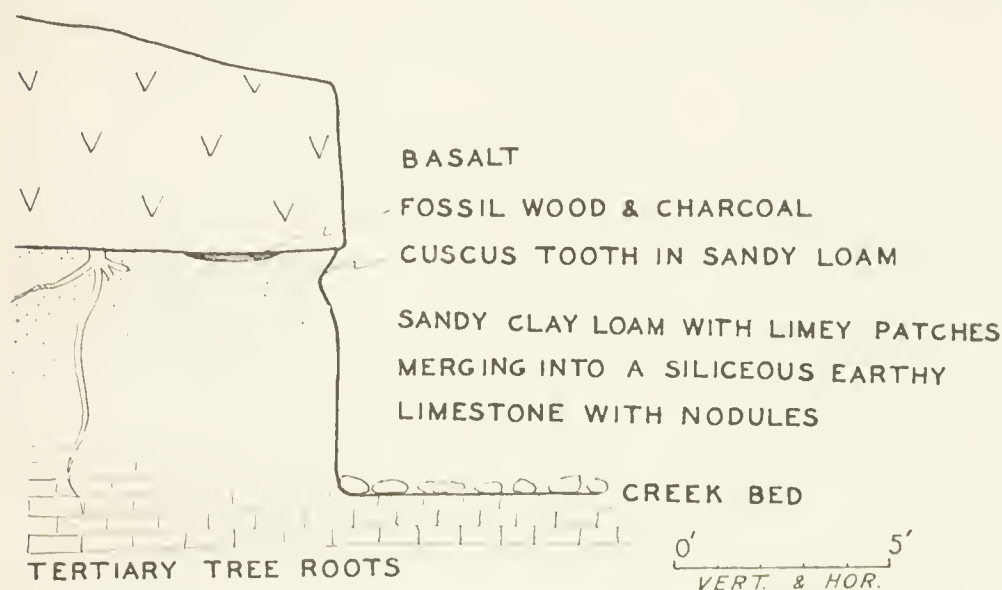 BASALT
FOSSIL WOOD & CHARCOAL
CUSCUS TOOTH IN SANDY LOAM
SANDY CLAY LOAM WITH LIMEY PATCHES
MERGING INTO A SILICEOUS EARTHY
LIMESTONE WITH NODULES
CREEK BED
TERTIARY TREE ROOTS
0' 5'
VERT. & HOR.